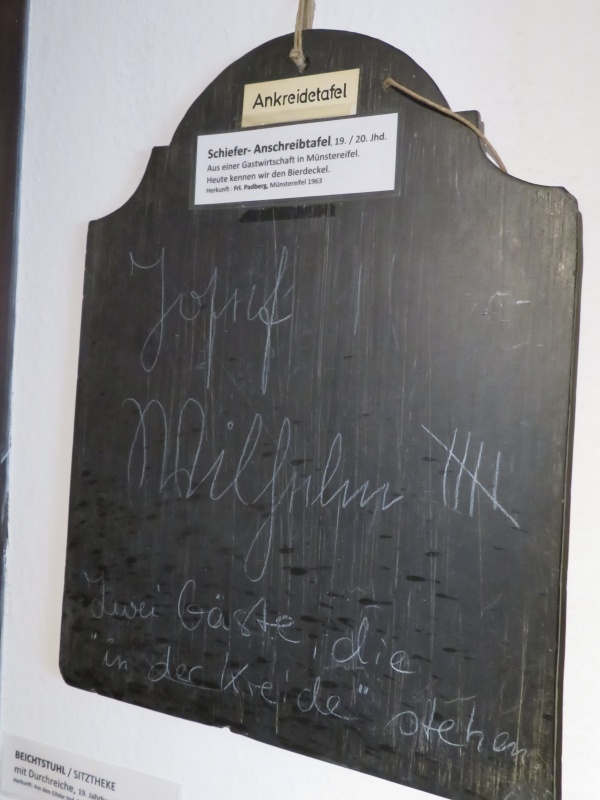 Ankreidetafel
Schiefer- Anschreibtafel, 19. / 20. Jhd.
Aus einer Gastwirtschaft in Münstereifel.
Heute kennen wir den Bierdeckel.
Herkunft : Frl. Padberg, Münstereifel 1963
Josef
Wilhelm
Zwei Gäste, die
"in der Kreide" stehen
BEICHTSTUHL / SITZTHEKE
mit Durchreiche, 19. Jahrh